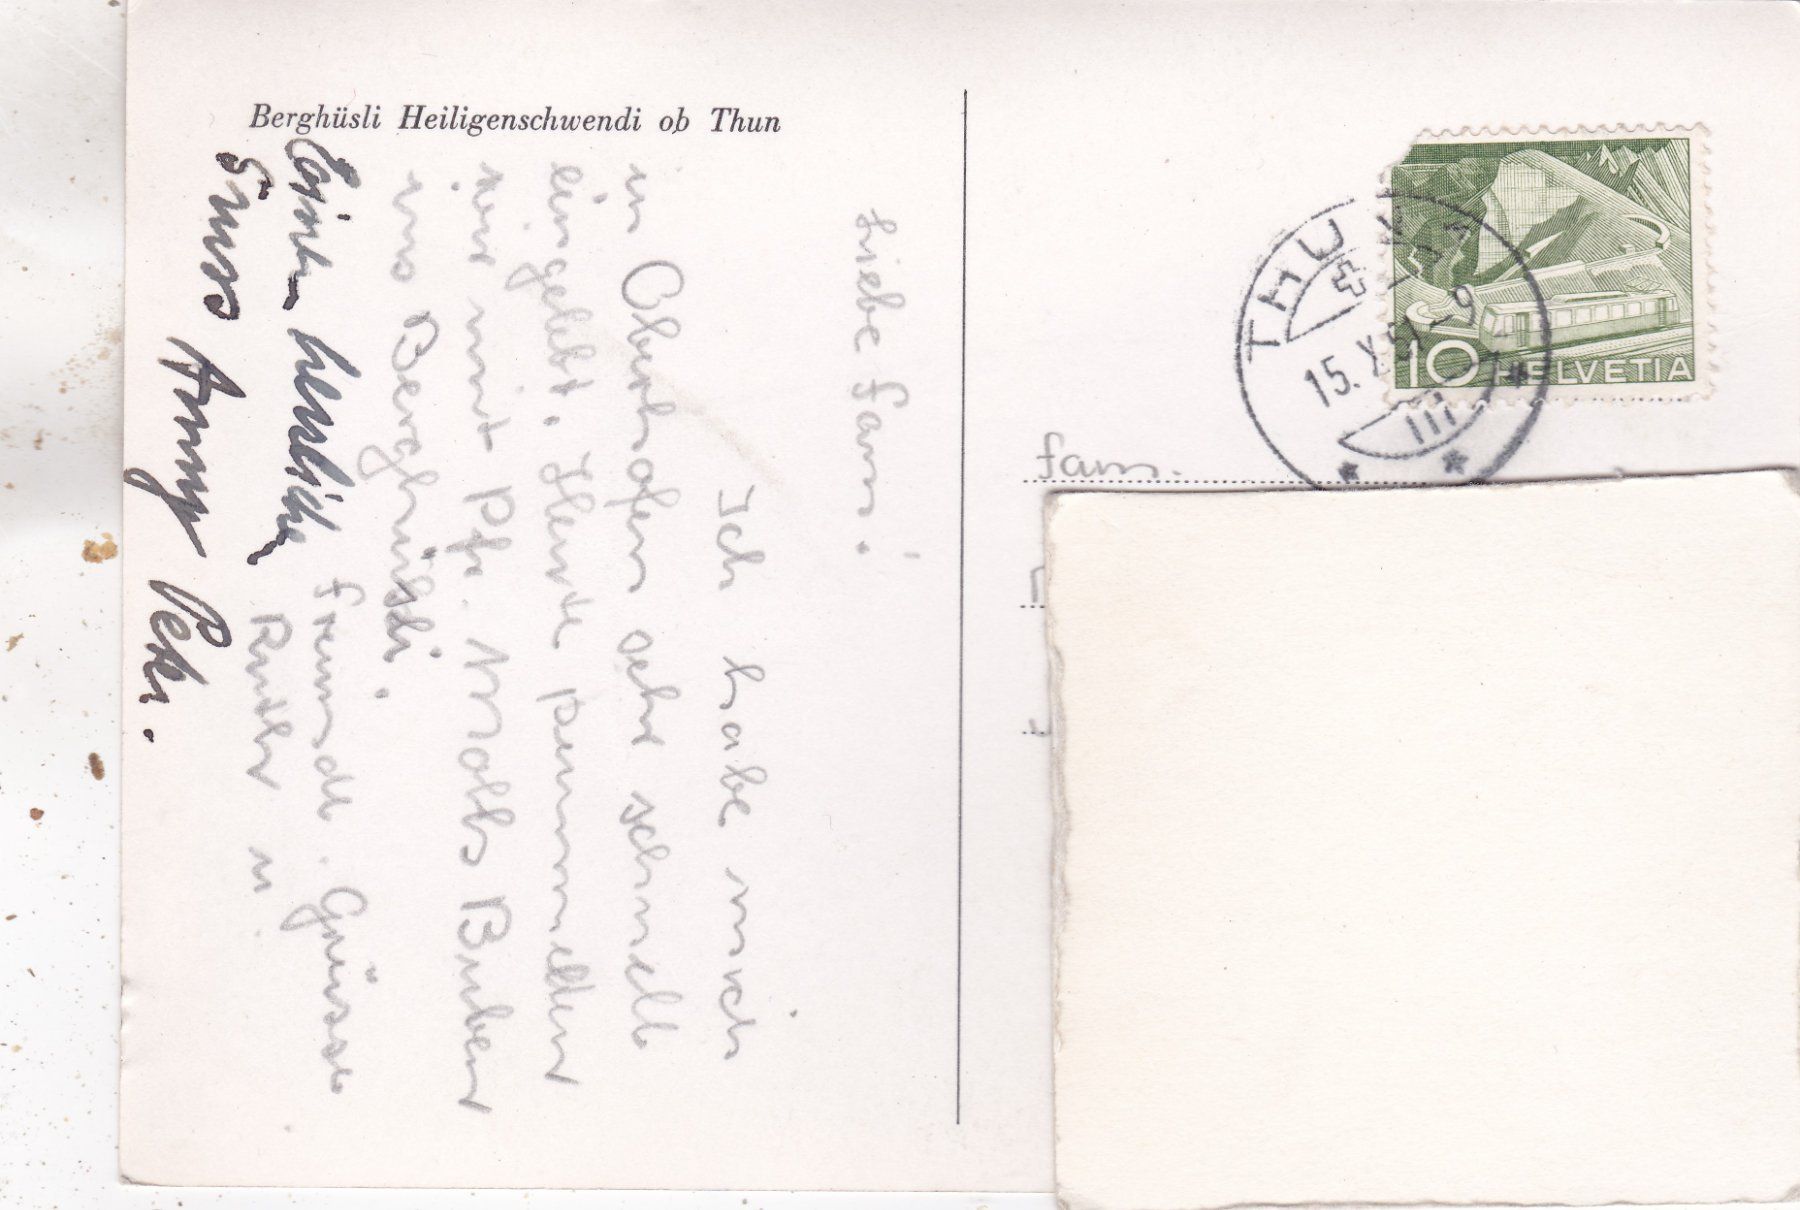 Berghüsli Heiligenschwendi ob Thun
Liebe Fam!
Ich habe mich
in Oberhofen sehr schnell
eingelebt. Heute pummelten
wir mit Pfr. Buben
ins Berghüsli.
Freundl. Grüsse
Ruth
herzlichen
Gruss Anny
Fam.
THUN
15. X. 51 - 9
III
10 HELVETIA